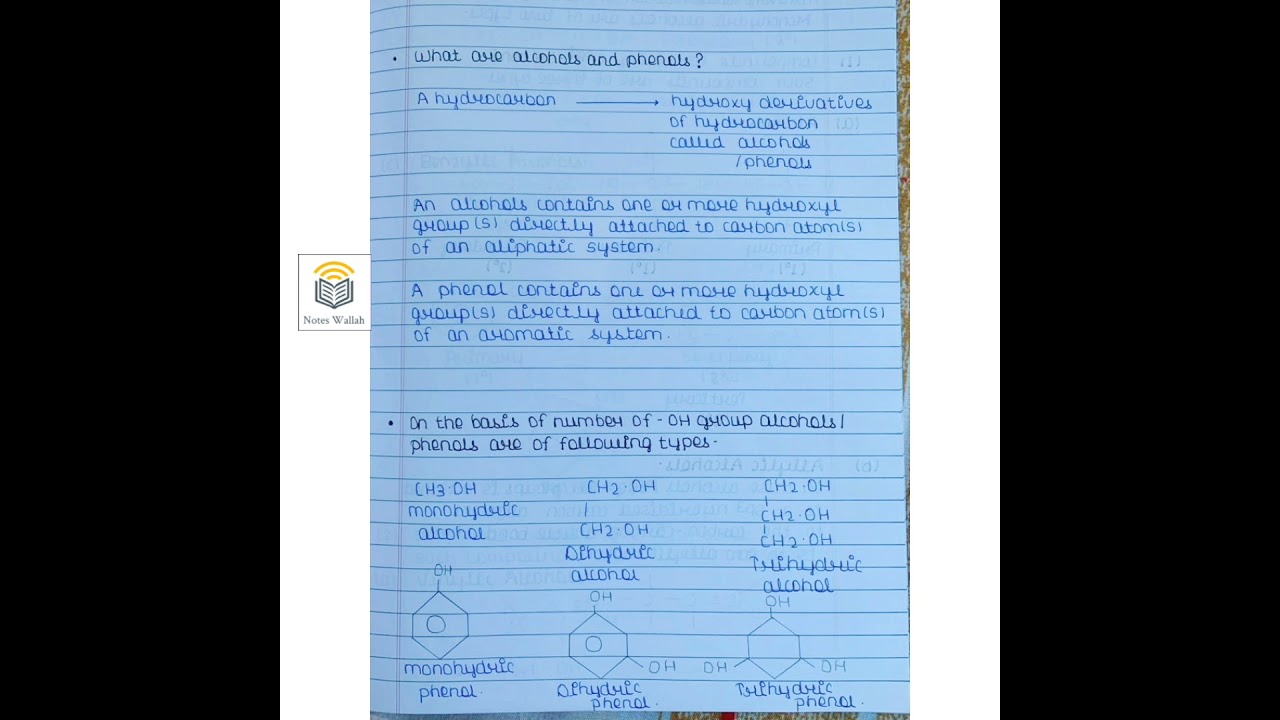 • What are alcohols and phenols?
A hydrocarbon → hydroxy derivatives
of hydrocarbon
called alcohols
/phenols
An alcohols contains one or more hydroxyl
group(s) directly attached to carbon atom(s)
of an aliphatic system.
A phenol contains one or more hydroxyl
group(s) directly attached to carbon atom(s)
of an aromatic system.
Notes Wallah
• On the basis of number of -OH group alcohols/
phenols are of following types-
CH3·OH
monohydric
alcohol
CH2·OH
CH2·OH
Dihydric
alcohol
CH2·OH
CH2·OH
CH2·OH
Trihydric
alcohol
OH
monohydric
phenol.
OH
OH
Dihydric
phenol.
OH
OH
OH
Trihydric
phenol.